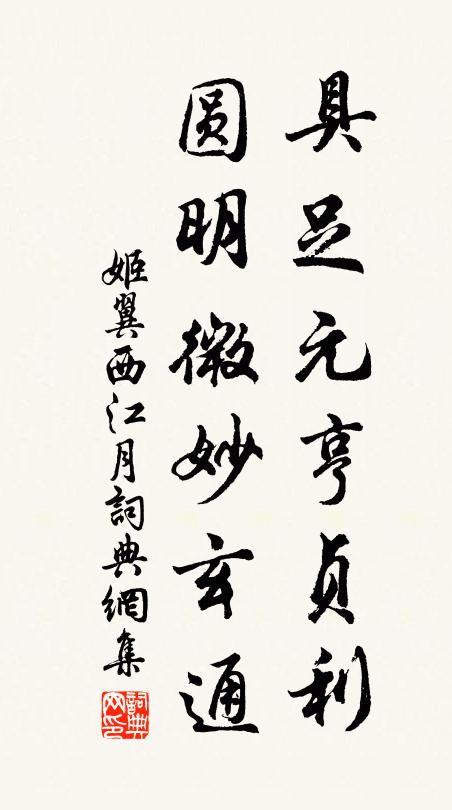 具足元亨贞利
圆明微妙玄通
姬翼西江月詞典網集
詞典网印